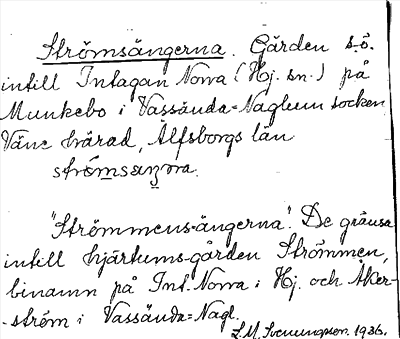 Strömsängerna. Gården s.ö.
intill Intagan Norra (Hj. sn.) på
Munkebo i Vassända-Naglum socken
Väne härad, Älfsborgs län
"Strömmens-ängerna". De gränsa
intill Hjärtums-gården Strömmen,
binamn på Int. Norra i Hj. och Åker-
-ström i Vassända-Nagl.
L.M. Svenungsson. 1936.